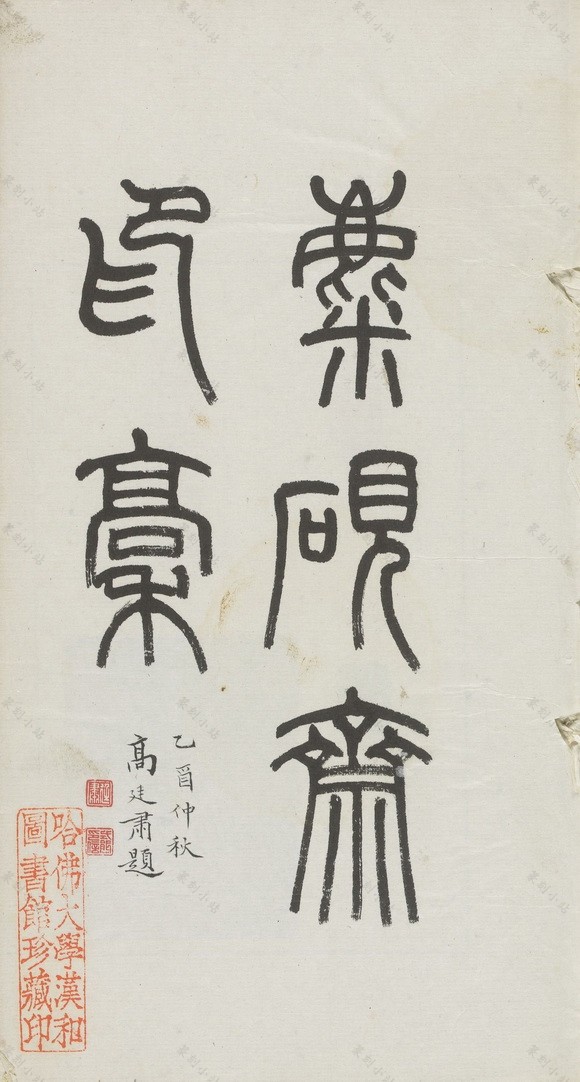 麋硯齋
印稾
乙酉仲秋
高廷肅題
哈佛大學漢和
圖書館珍藏印
篆刻小站